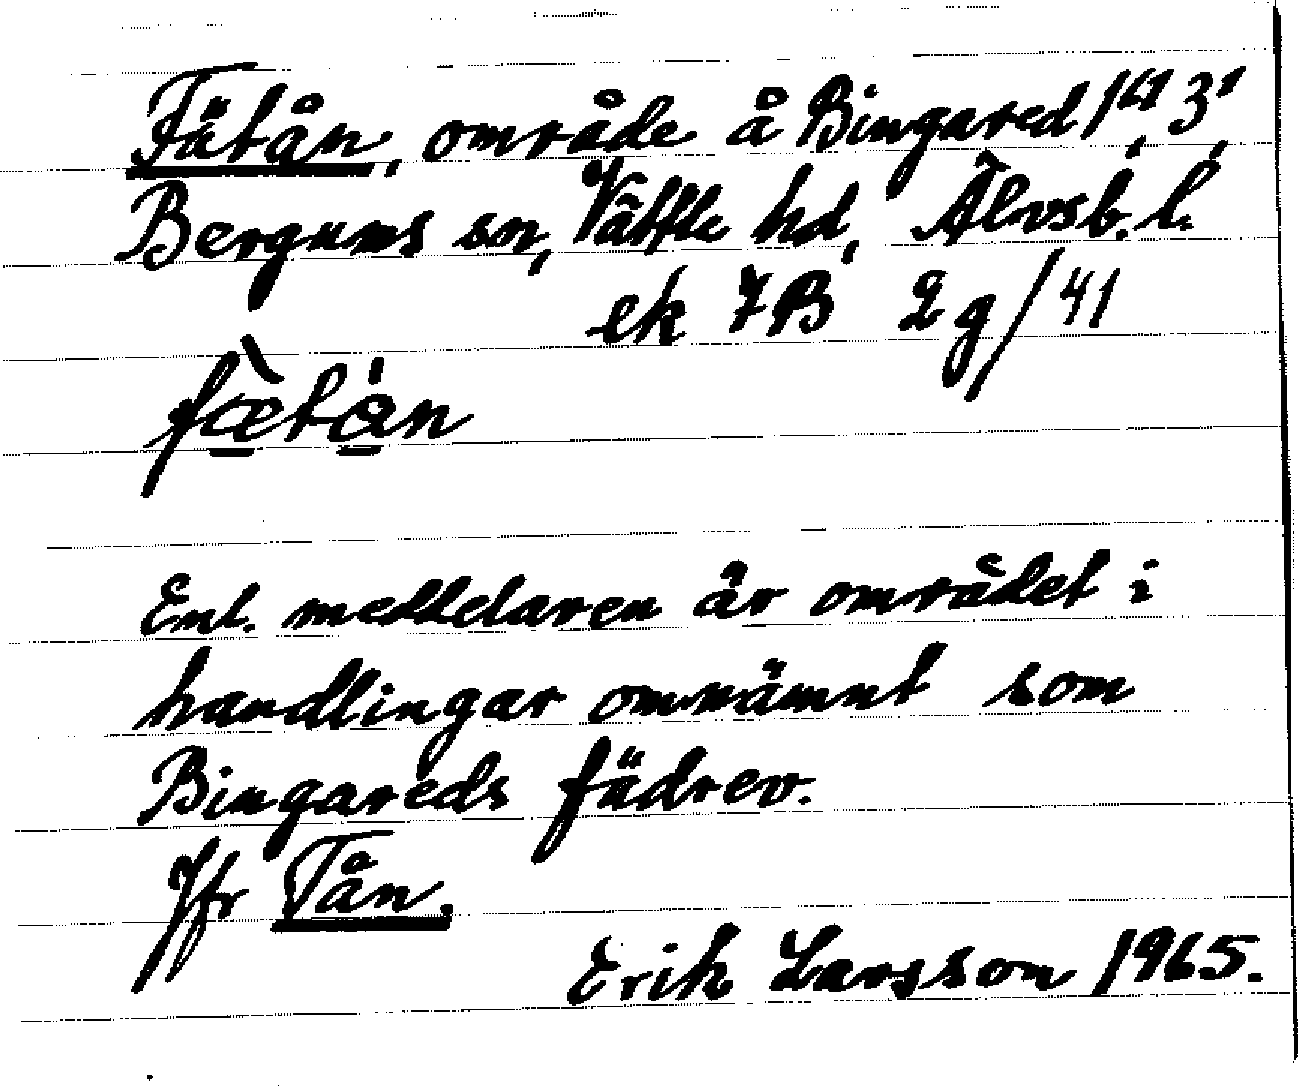 Fätån, område å Bingared 1⁴, 3¹,
Bergums sn, Vättle hd, Älvsb. l.
ek 7B 2g/41
fæ̀tån
Enl. meddelaren är området i
handlingar omnämnt som
Bingareds fädrev.
Jfr Tån.
Erik Larsson 1965.